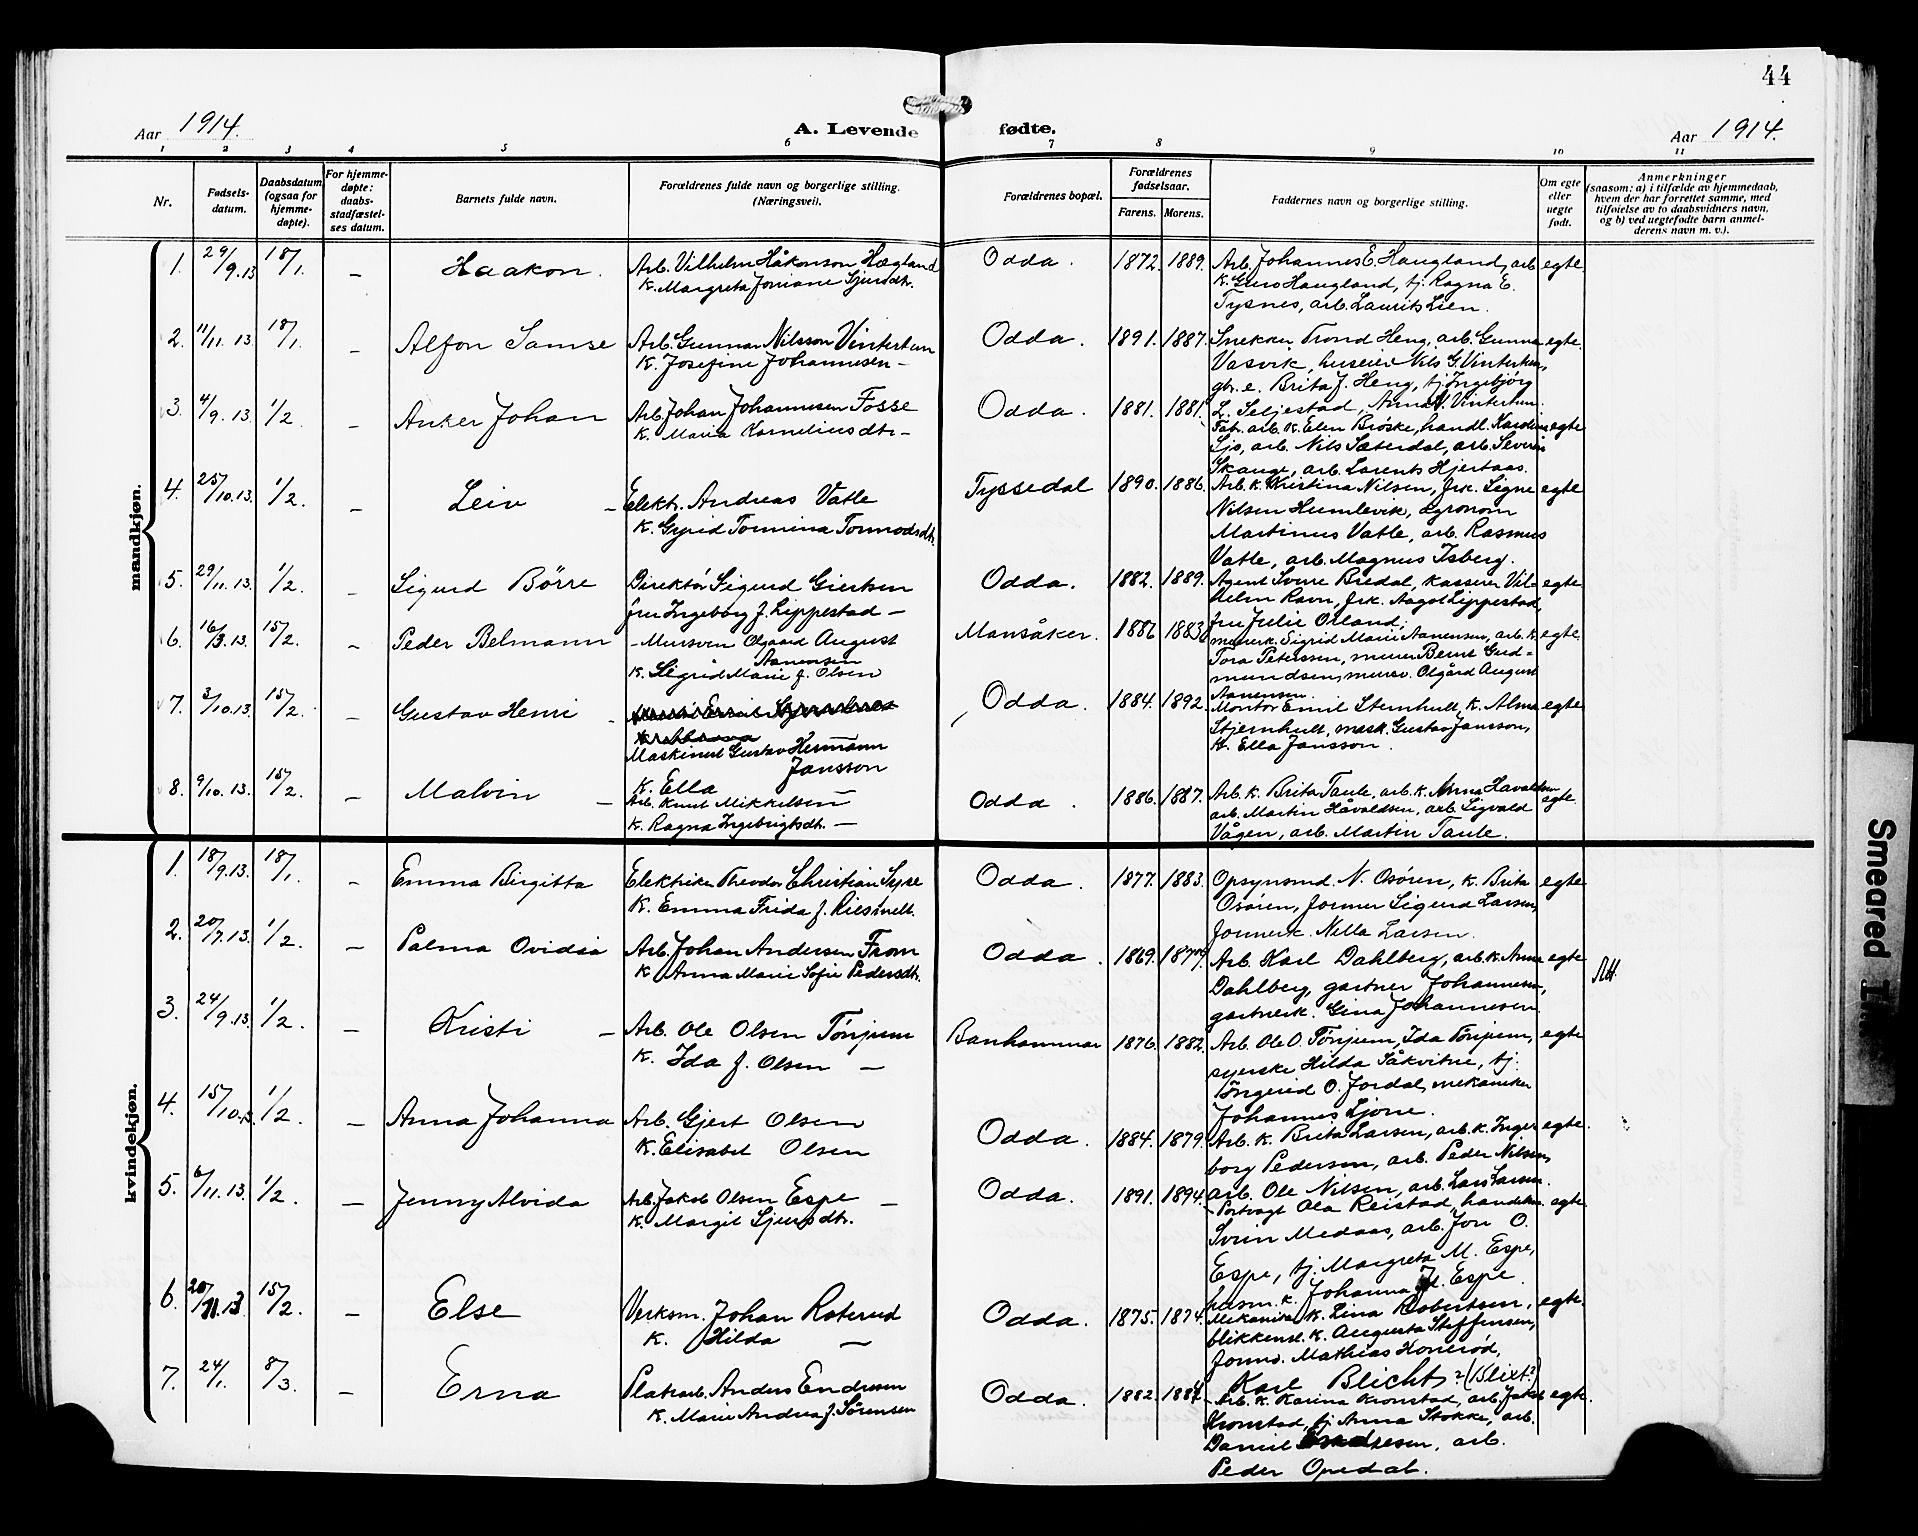 44
Aar 1914. A. Levende fødte. Aar 1914.
1 2 3 4 5 6 7 8 9 10 11
Nr.
Fødsels-
datum.
Daabsdatum
(ogsaa for
hjemme-
døpte).
For hjemme-
døpte:
daabs-
stadfæstel-
ses datum.
Barnets fulde navn.
Forældrenes fulde navn og borgerlige stilling.
(Næringsvei).
Forældrenes bopæl.
Forældrenes
fødselsaar.
Farens. Morens.
Faddernes navn og borgerlige stilling.
Om egte
eller
uegte
født.
Anmerkninger
(saasom: a) i tilfælde av hjemmedaab,
hvem der har forrettet samme, med
tilføielse av to daabsvidners navn,
og b) ved uegtefødte barn anmel-
derens navn m. v.).
mandkjøn.
1. 29/9.13 18/1. – Haakon. Arb. Vilhelm Håkonson Hægland Odda. 1872. 1889. Arb. Johannes E. Haugland, arb. egte
K. Margreta Joniane Sjursdtr. K. Guro Haugland, tj. Ragna E.
Tysnes, arb. Laurits Lien.
2. 11/11. 13. 18/1. – Alfon Samse Arb. Gunnar Nilsson Vintertun Odda. 1891. 1887. Snekker Trond Heng, arb. Gunnar egte.
K. Josefine Johannesen – Vasvik, huseier Nils G. Vintertun,
gbr. e. Brita J. Heng, tj. Ingebjørg
L. Seljestad, Anna N. Vintertun.
3. 4/9. 13. 1/2. – Anker Johan Arb. Johan Johannesen Fosse Odda. 1881. 1881. Fab. arb. K. Elen Broske, handl. Karoline egte
K. Maria Kornelius dtr – Sjo, arb. Nils Sæterdal, arb. Severin
Skauge, arb. Larents Hjertaas.
4. 25/10.13. 1/2. – Leiv – Elektr. Andreas Vatle Tyssedal 1890. 1886. Arb. K. Kristina Nilsen, frk. Signe egte
K. Gyrid Tormina Tormodsdtr. Nilsen Humlevik, agronom
Martinus Vatle, arb. Rasmus
Vatle, arb. Magnus Isberg.
5. 29/11. 13. 1/2. – Sigurd Börre Direktör Sigurd Giertsen Odda. 1882. 1889. Agent Sverre Bredal, kasserer Vil- egte
fru Ingeborg f. Lippestad – helm Ravn, frk. Aagot Lippestad,
fru Julie Orland.
6. 16/3. 13. 15/2. – Peder Belmann – Mursven Olgaard August Mansåker. 1886 1883 murerk. Sigrid Marie Aanensen, arb. k. egte
Aanensen Tora Peterssen, murer Bernt Gud-
K. Sigrid Marie f. Olsen mundsen, mursv. Olgård August
Aanensen.
7. 3/10.13. 15/2. – Gustav Henri – Odda. 1884. 1892. Montør Emil Sternhult, K. Alma egte
Stjernhult, mask. Gustav Jansson,
Maskinist Gustav Hermann K. Ella Jansson.
Jansson
K. Ella –
8. 9/10. 13. 15/2. – Malvin – Arb. Knut Mikkelsen Odda. 1886. 1887. Arb. K. Brita Taule, arb. K. Anna Havaldsen egte
K. Ragna Ingebrigtsdtr. – arb. Martin Håvaldsen, arb. Sigvald
Vågen, arb. Martin Taule.
kvindekjøn.
1. 18/9.13. 18/1. – Emma Birgitta Elektriker Theodor Christian Syse Odda. 1877. 1883. Opsynsmd. N. Osören, K. Brita egte
K. Emma Frida f. Riesmelt. Osören, former Sigurd Larsen,
formerk. Nella Larsen.
2. 20/7.13. 1/2. – Palma Ovidia Arb. Johan Andersen From Odda. 1869. Arb. Karl Dahlberg, arb. k. Anna egte
K. Anna Marie Sofie Pedersdtr. Dahlberg, gartner Johannesen,
gartnerk. Gina Johannesen
3. 24/9.13 1/2. – Kristi – Arb. Ole Olsen Tönjum Banhammar 1876. 1882. Arb. Ole O. Tönjum, Ida Tönjum, egte
K. Ida f. Olsen – syerske Hilda Såkvitne, tj.
Ingerid O. Jordal, mekaniker
Johannes Ljone.
4. 15/10.13. 1/2. – Anna Johanna Arb. Gjert Olsen Odda. 1884. 1879. Arb. K. Brita Larsen, arb. K. Inge- egte.
K. Elisabet Olsen borg Pedersen, arb. Peder Nilsen,
arb. Ole Nilsen, arb. Lars Larsen.
5. 6/11. 13. 1/2. – Jenny Alvida Arb. Jakob Olsen Espe – Odda. 1891. 1894. Portvagt Ola Reistad, handelsm. egte.
K. Margit Sjursdtr. Svein Medaas, arb. Jon O.
Espe, tj. Margreta M. Espe,
husm. k. Johanna J. Espe.
6. 20/11.13 15/2. – Else Verksm. Johan Roterud Odda. 1875. 1874. Mekaniker K. Lina Robertsen, egte.
K. Hilda – blikkensl. K. Augusta Steffensen,
formd. Mathias Honerød,
Karl Blicht ? (Blixt?)
7. 24/1. 8/3. – Erna Platearb. Anders Endresen Odda. 1882. 1884. Arb. K. Karina Kronstad, arb. Jakob egte.
K. Marie Andrea f. Sörensen Kronstad, tj. Anna Stokke, arb.
Daniel Endresen, arb.
Peder Opedal.
Smeared